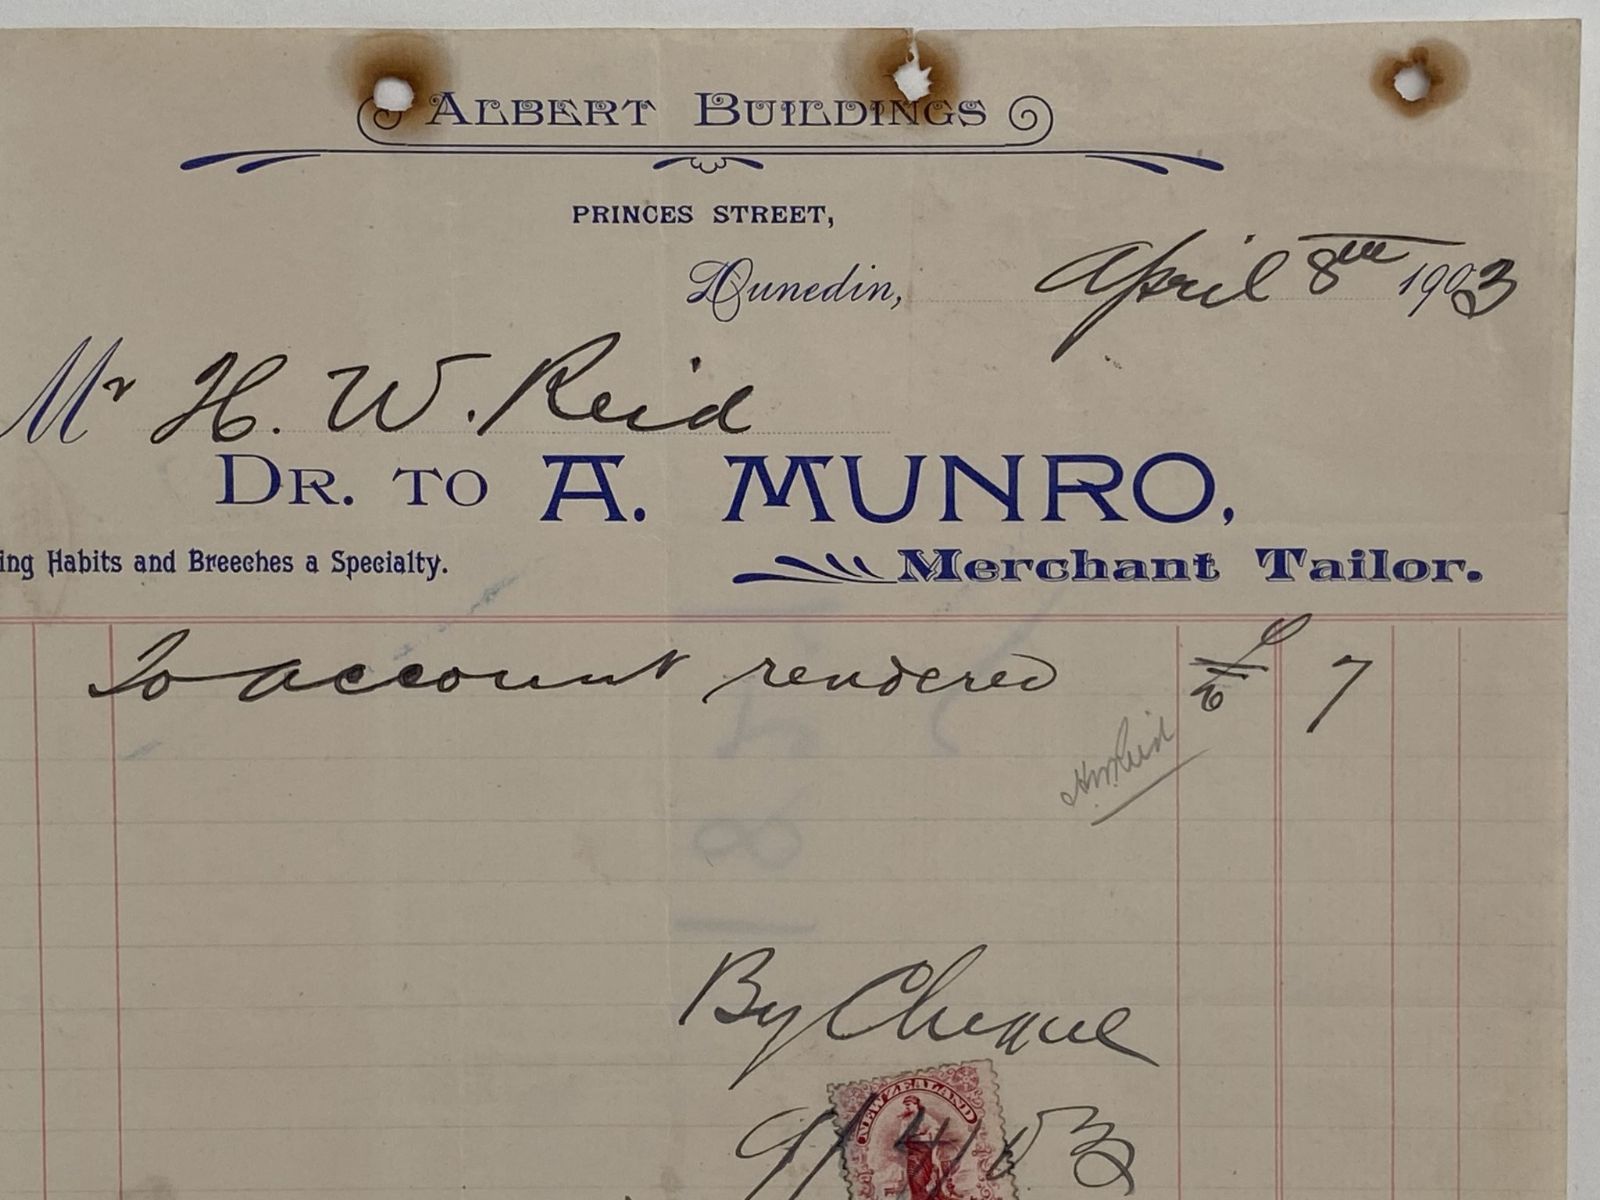 ALBERT BUILDINGS
PRINCES STREET,
Dunedin, April 8th 1903
Mr H. W. Reid
DR. TO A. MUNRO,
ing Habits and Breeches a Specialty. Merchant Tailor.
To account rendered £ 7
HWReid
By Cheque
9/4/03
NEW ZEALAND